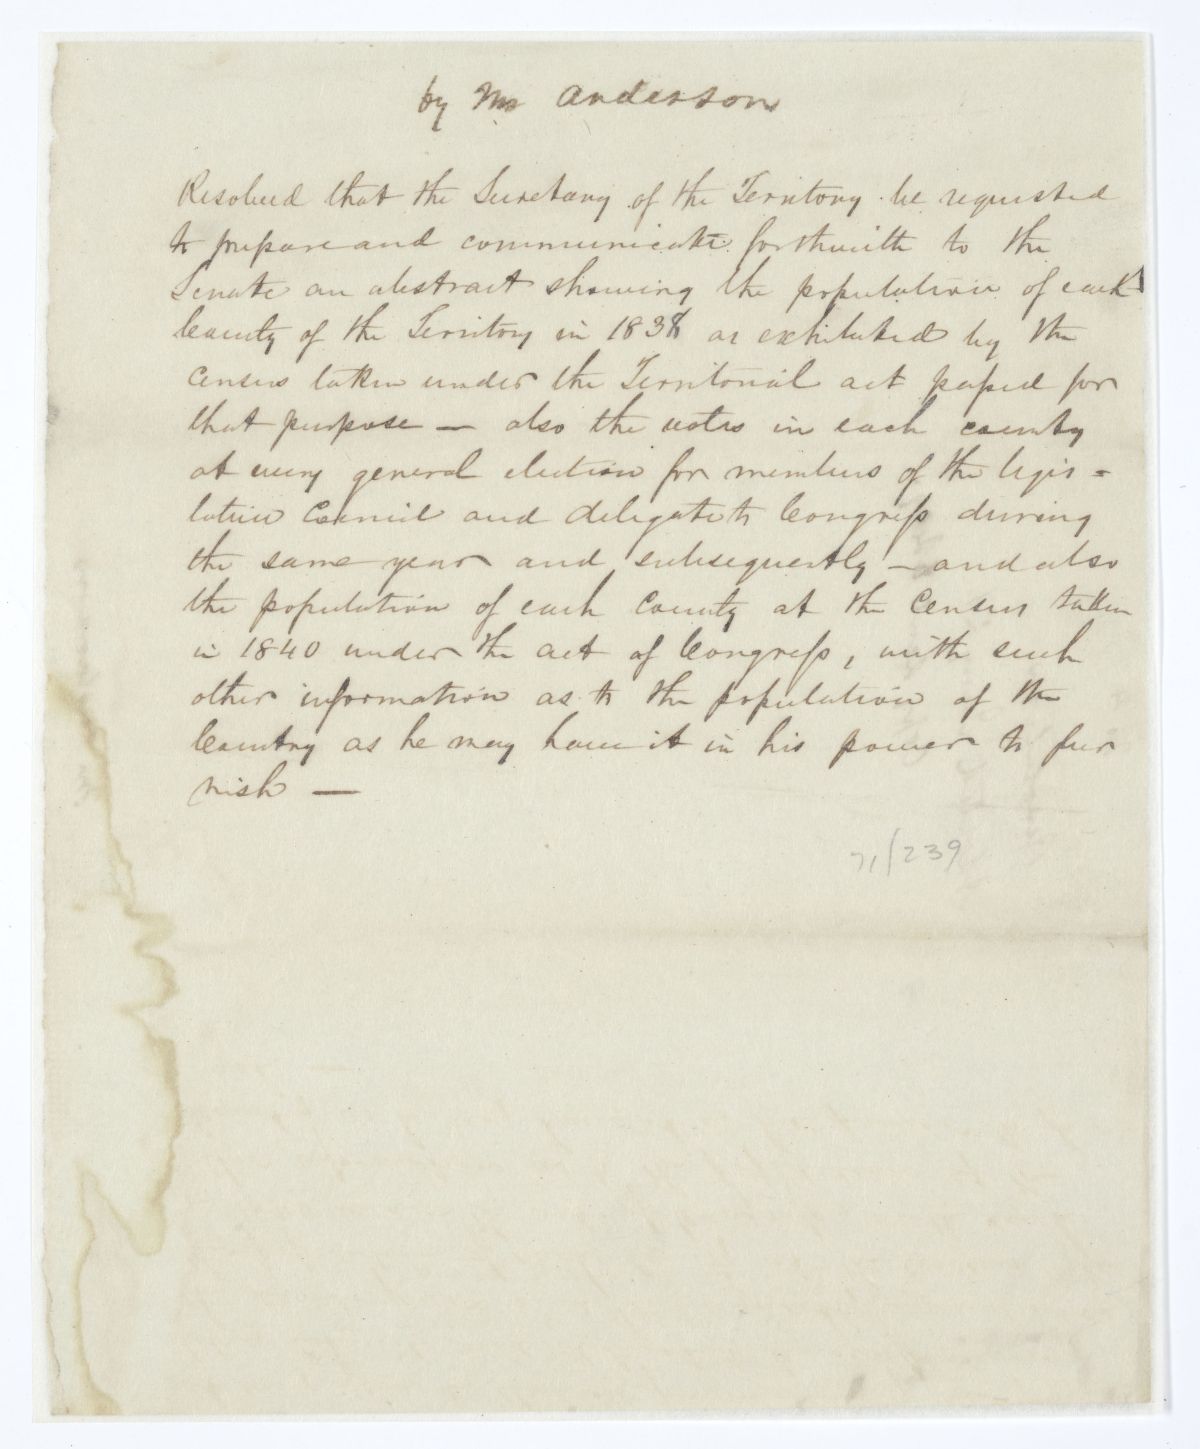 by Mr Anderson
Resolved that the Secretary of the Territory be requested
to prepare and communicate forthwith to the
Senate an abstract showing the population of each
County of the Territory in 1838 as exhibited by the
census taken under the Territorial act passed for
that purpose — also the votes in each county
at every general election for members of the legis=
lative Council and delegate to Congress during
the same year and subsequently — and also
the population of each County at the Census taken
in 1840 under the act of Congress, with such
other information as to the population of the
Country as he may have it in his power to fur
nish —
71/239